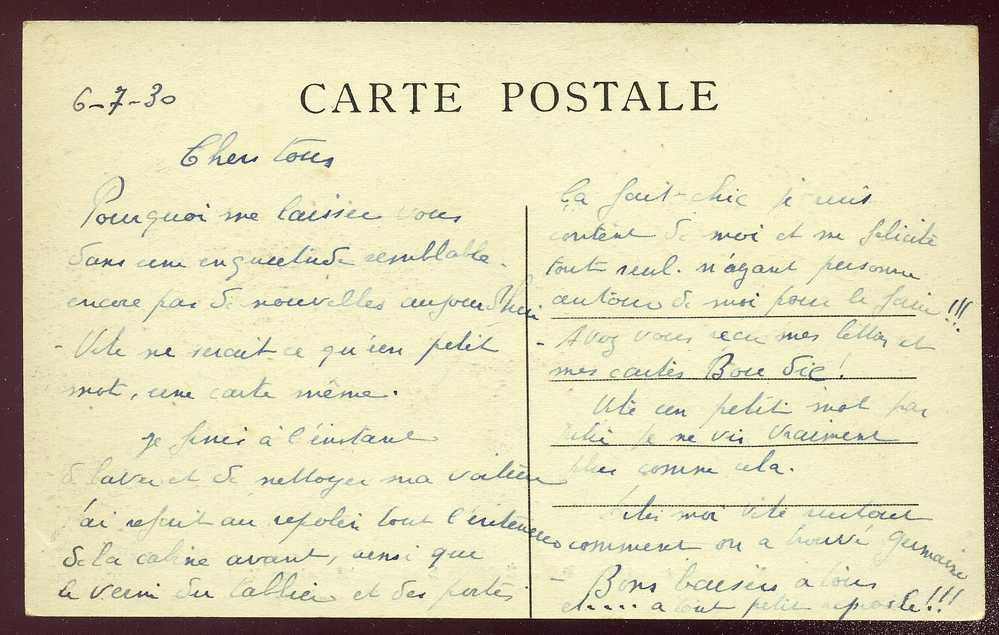 6-7-30
CARTE POSTALE
Chers tous
Pourquoi me laisser vous
dans une inquietude semblable.
encore pas de nouvelles aujourd'hui
- Vite ne serait ce qu'un petit
mot, une carte même.
je finis à l'instant
de laver et de nettoyer ma voiture
j'ai refait au repolin tout l'intérieur
de la cabine avant, ainsi que
le verni du tablier et des portes
ça fait chic je suis
content de moi et me félicite
tout seul. n'ayant personne
autour de moi pour le faire !!!
- Avez vous recu mes lettres et
mes cartes Bou Die!
Vite un petit mot par
pitié je ne vis vraiment
plus comme cela.
Dites moi vite surtout
comment on a trouvé Germaine
- Bons baisers a tous
et.... a tout petit !!!